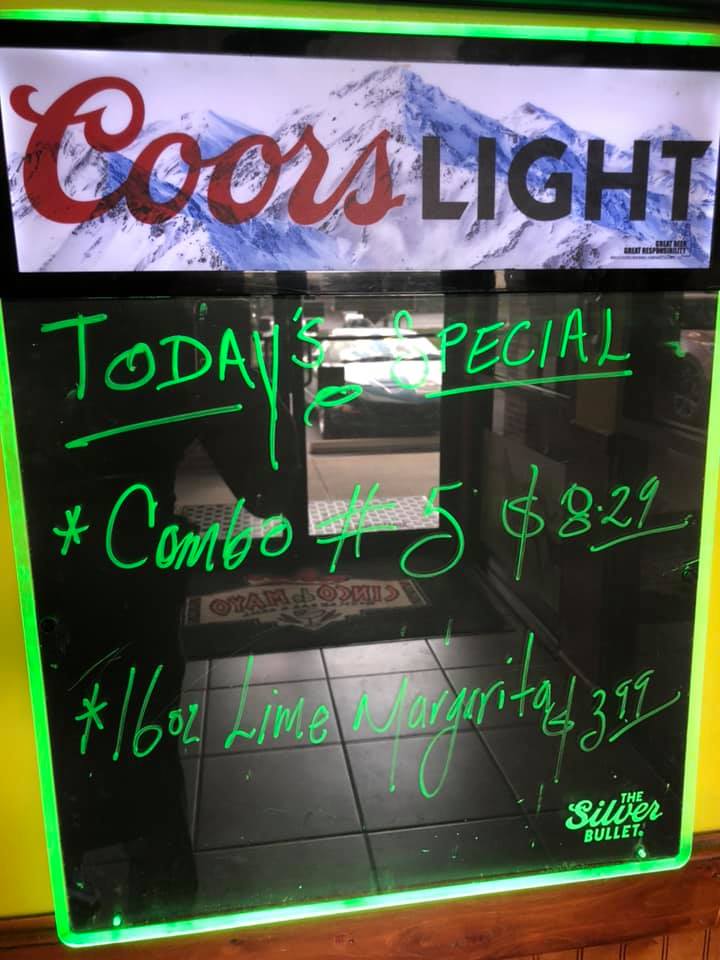 Coors LIGHT
GREAT BEER
GREAT RESPONSIBILITY
TODAY'S SPECIAL
* Combo # 5 $ 8.29
CINCO de MAYO
* 16oz Lime Margarita $ 3.99
THE
Silver
BULLET.